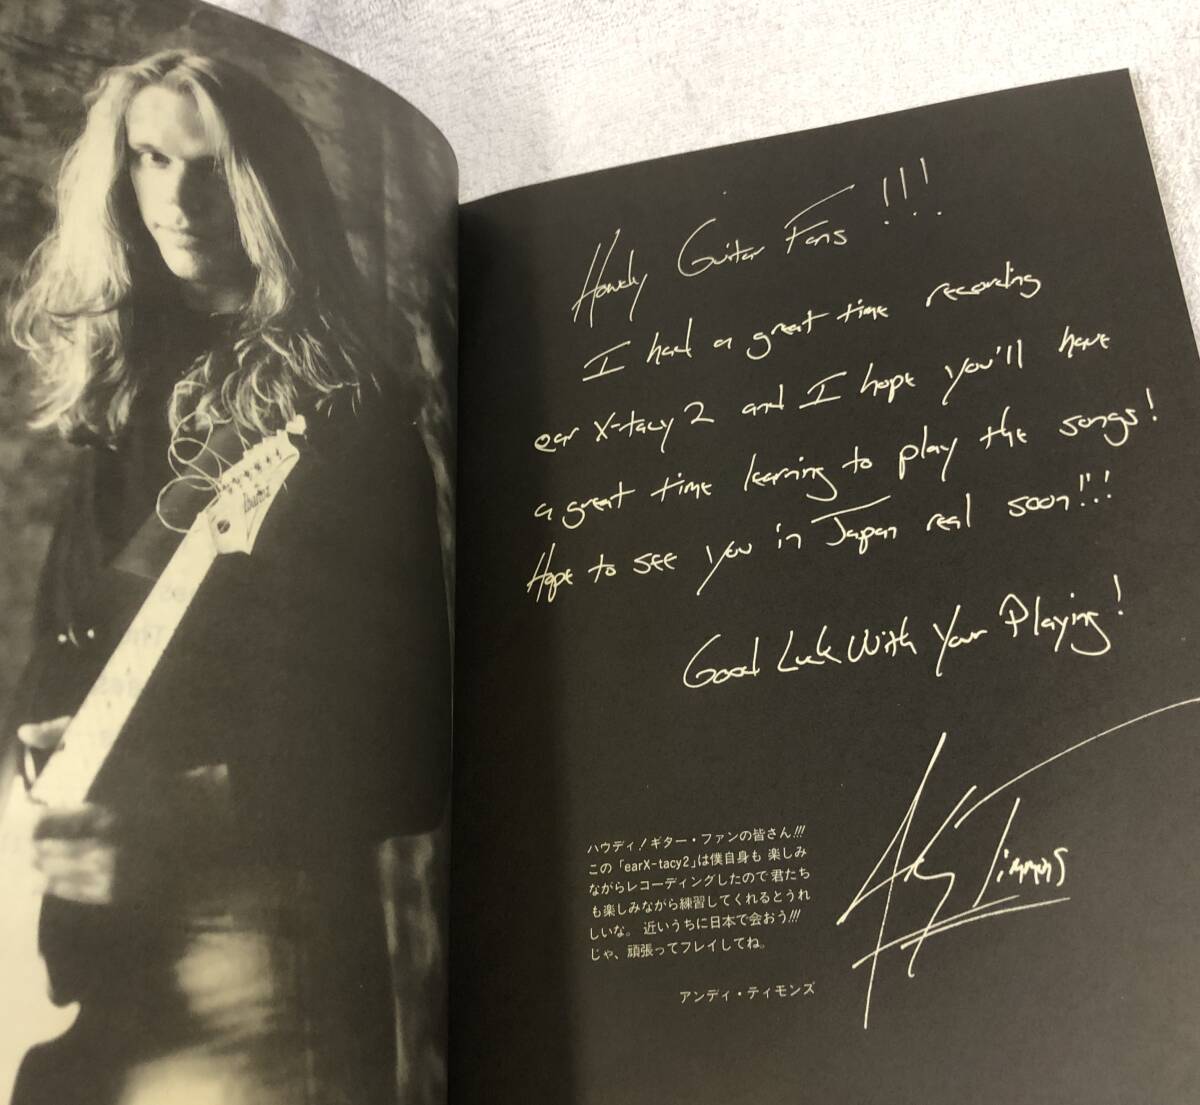 Howdy Guitar Fans !!!
I had a great time recording
ear X-tacy 2 and I hope you'll have
a great time learning to play the songs!
Hope to see you in Japan real soon!!!
Good Luck With Your Playing!
Andy Timmons
ハウディ!ギター・ファンの皆さん!!!
この「earX-tacy2」は僕自身も 楽しみ
ながらレコーディングしたので 君たち
も楽しみながら練習してくれるとうれ
しいな。 近いうちに日本で会おう!!!
じゃ、頑張ってプレイしてね。
アンディ・ティモンズ
Ibanez